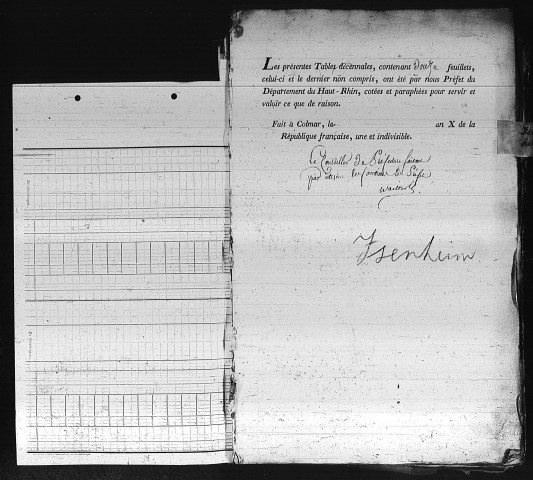 Les présentes Tables décennales, contenant douze feuillets,
celui-ci et le dernier non compris, ont été par nous Préfet du
Département du Haut-Rhin, cotées et paraphées pour servir et
valoir ce que de raison.
Fait à Colmar, le an X de la
République française, une et indivisible.
Le Conseiller de Préfecture
par
Isenheim